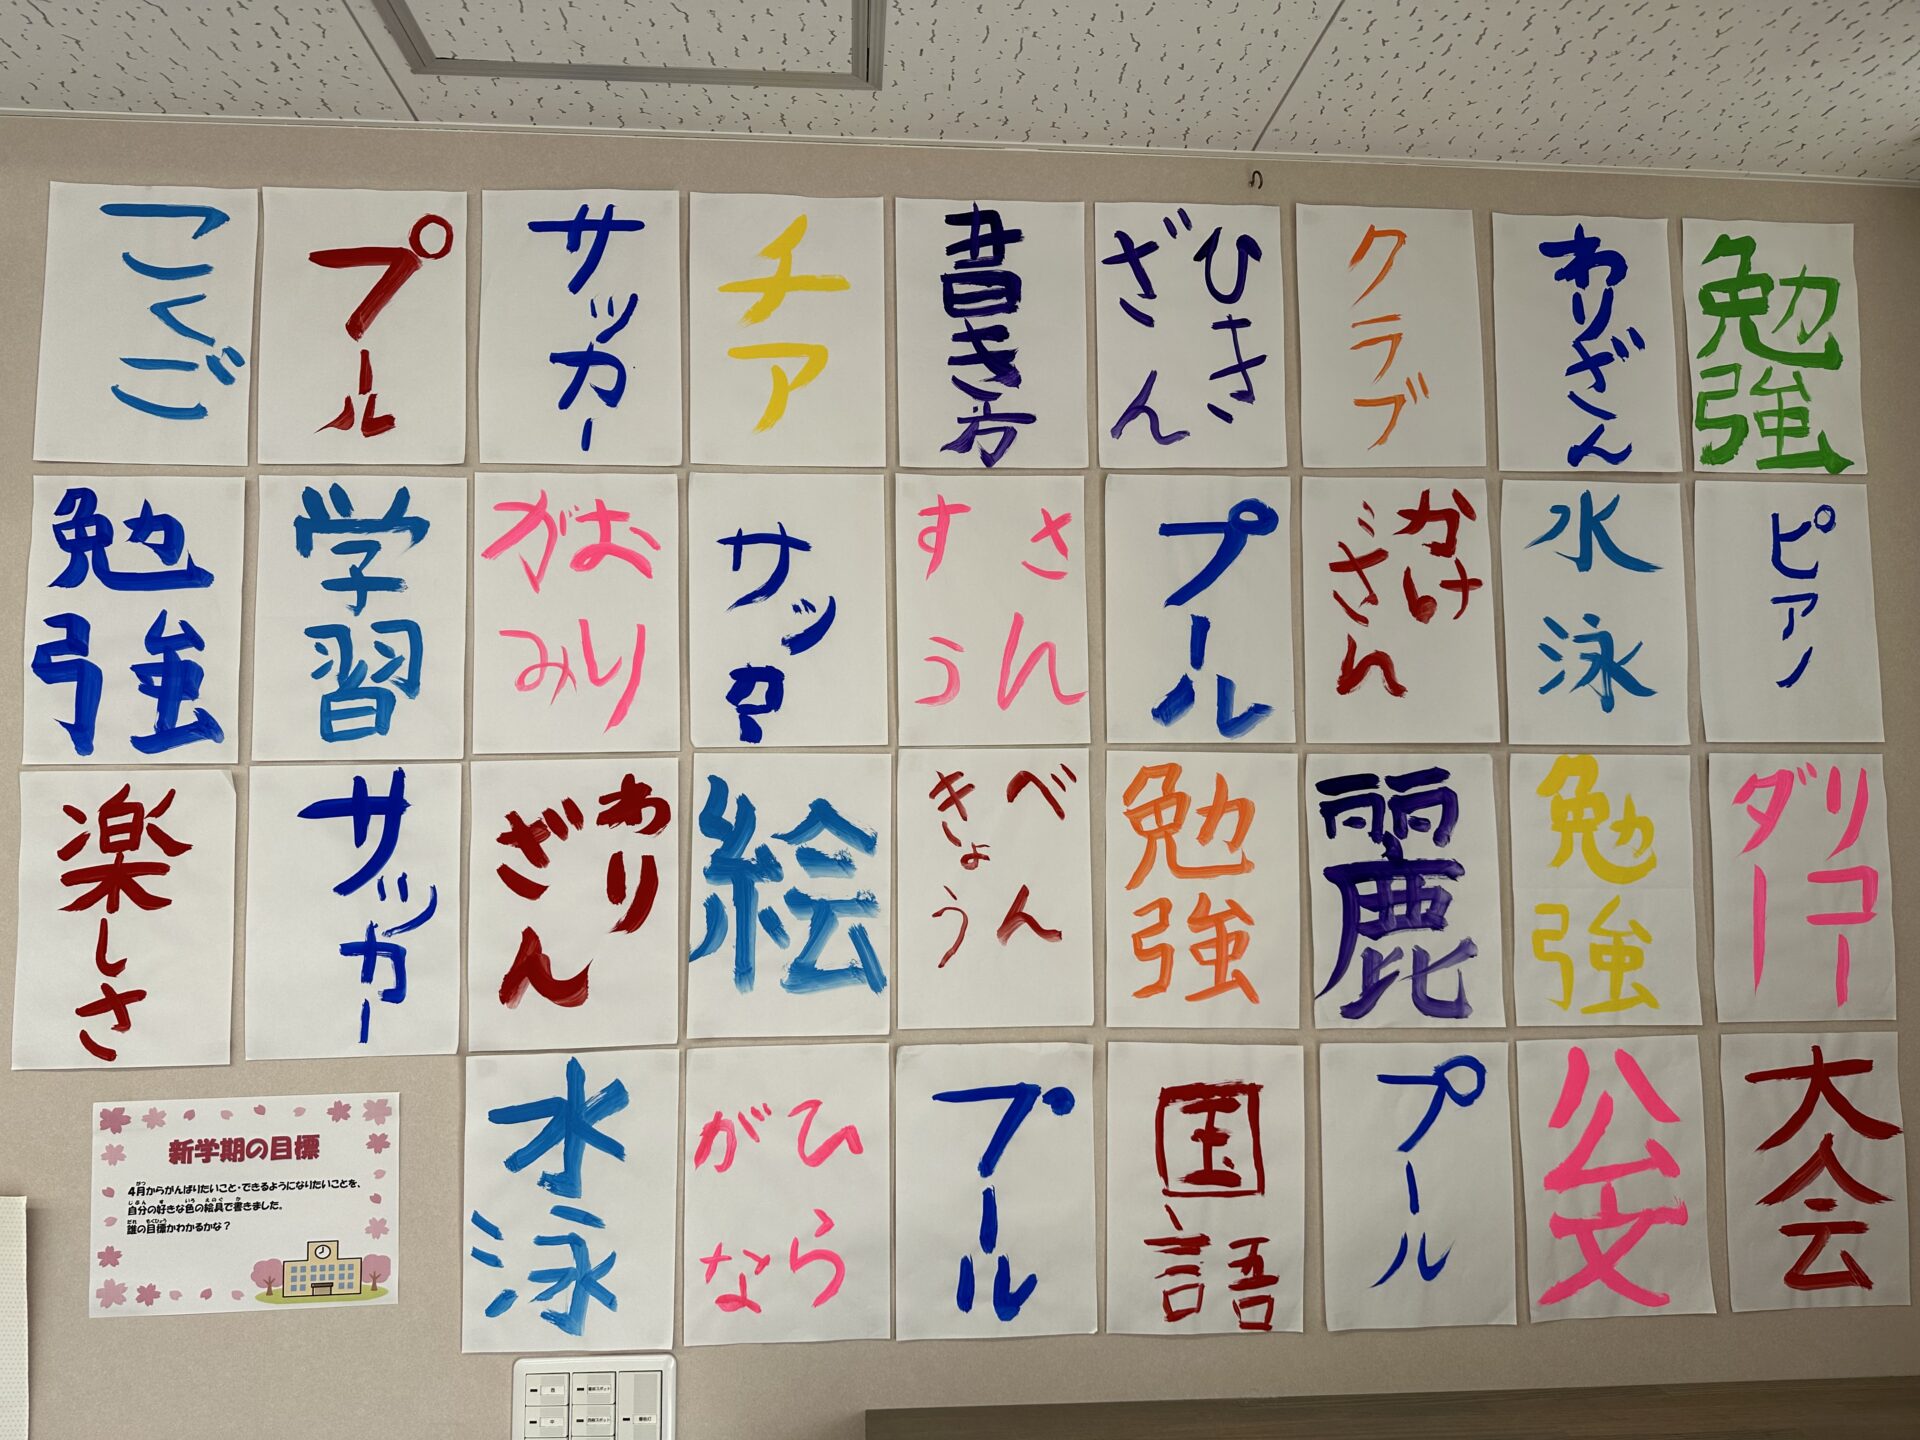 こくご
プール
サッカー
チア
書き方
ひき
ざん
クラブ
わりざん
勉強
勉強
学習
おり
がみ
サッカー
さん
すう
プール
かけ
ざん
水泳
ピアノ
楽しさ
サッカー
わり
ざん
絵
べん
きょう
勉強
麗
勉強
リコー
ダー
水泳
ひら
がな
プール
国語
プール
公文
大会
新学期の目標
4月からがんばりたいこと・できるようになりたいことを、
自分の好きな色の絵具で書きました。
誰の目標かわかるかな？